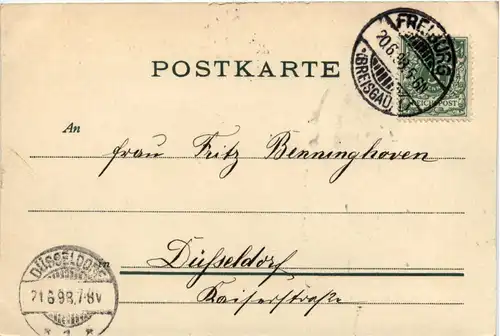 FREIBURG
20.6.98.5-6N
(BREISGAU)
REICHSPOST
POSTKARTE
An
Frau Fritz Benninghoven
in
Düsseldorf
Kaiserstraße
DÜSSELDORF
21.6.98.7-8V
* 1 *